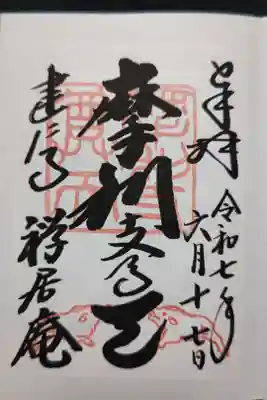 奉拝
令和七年
六月十七日
摩利支尊天
建仁寺
禅居庵